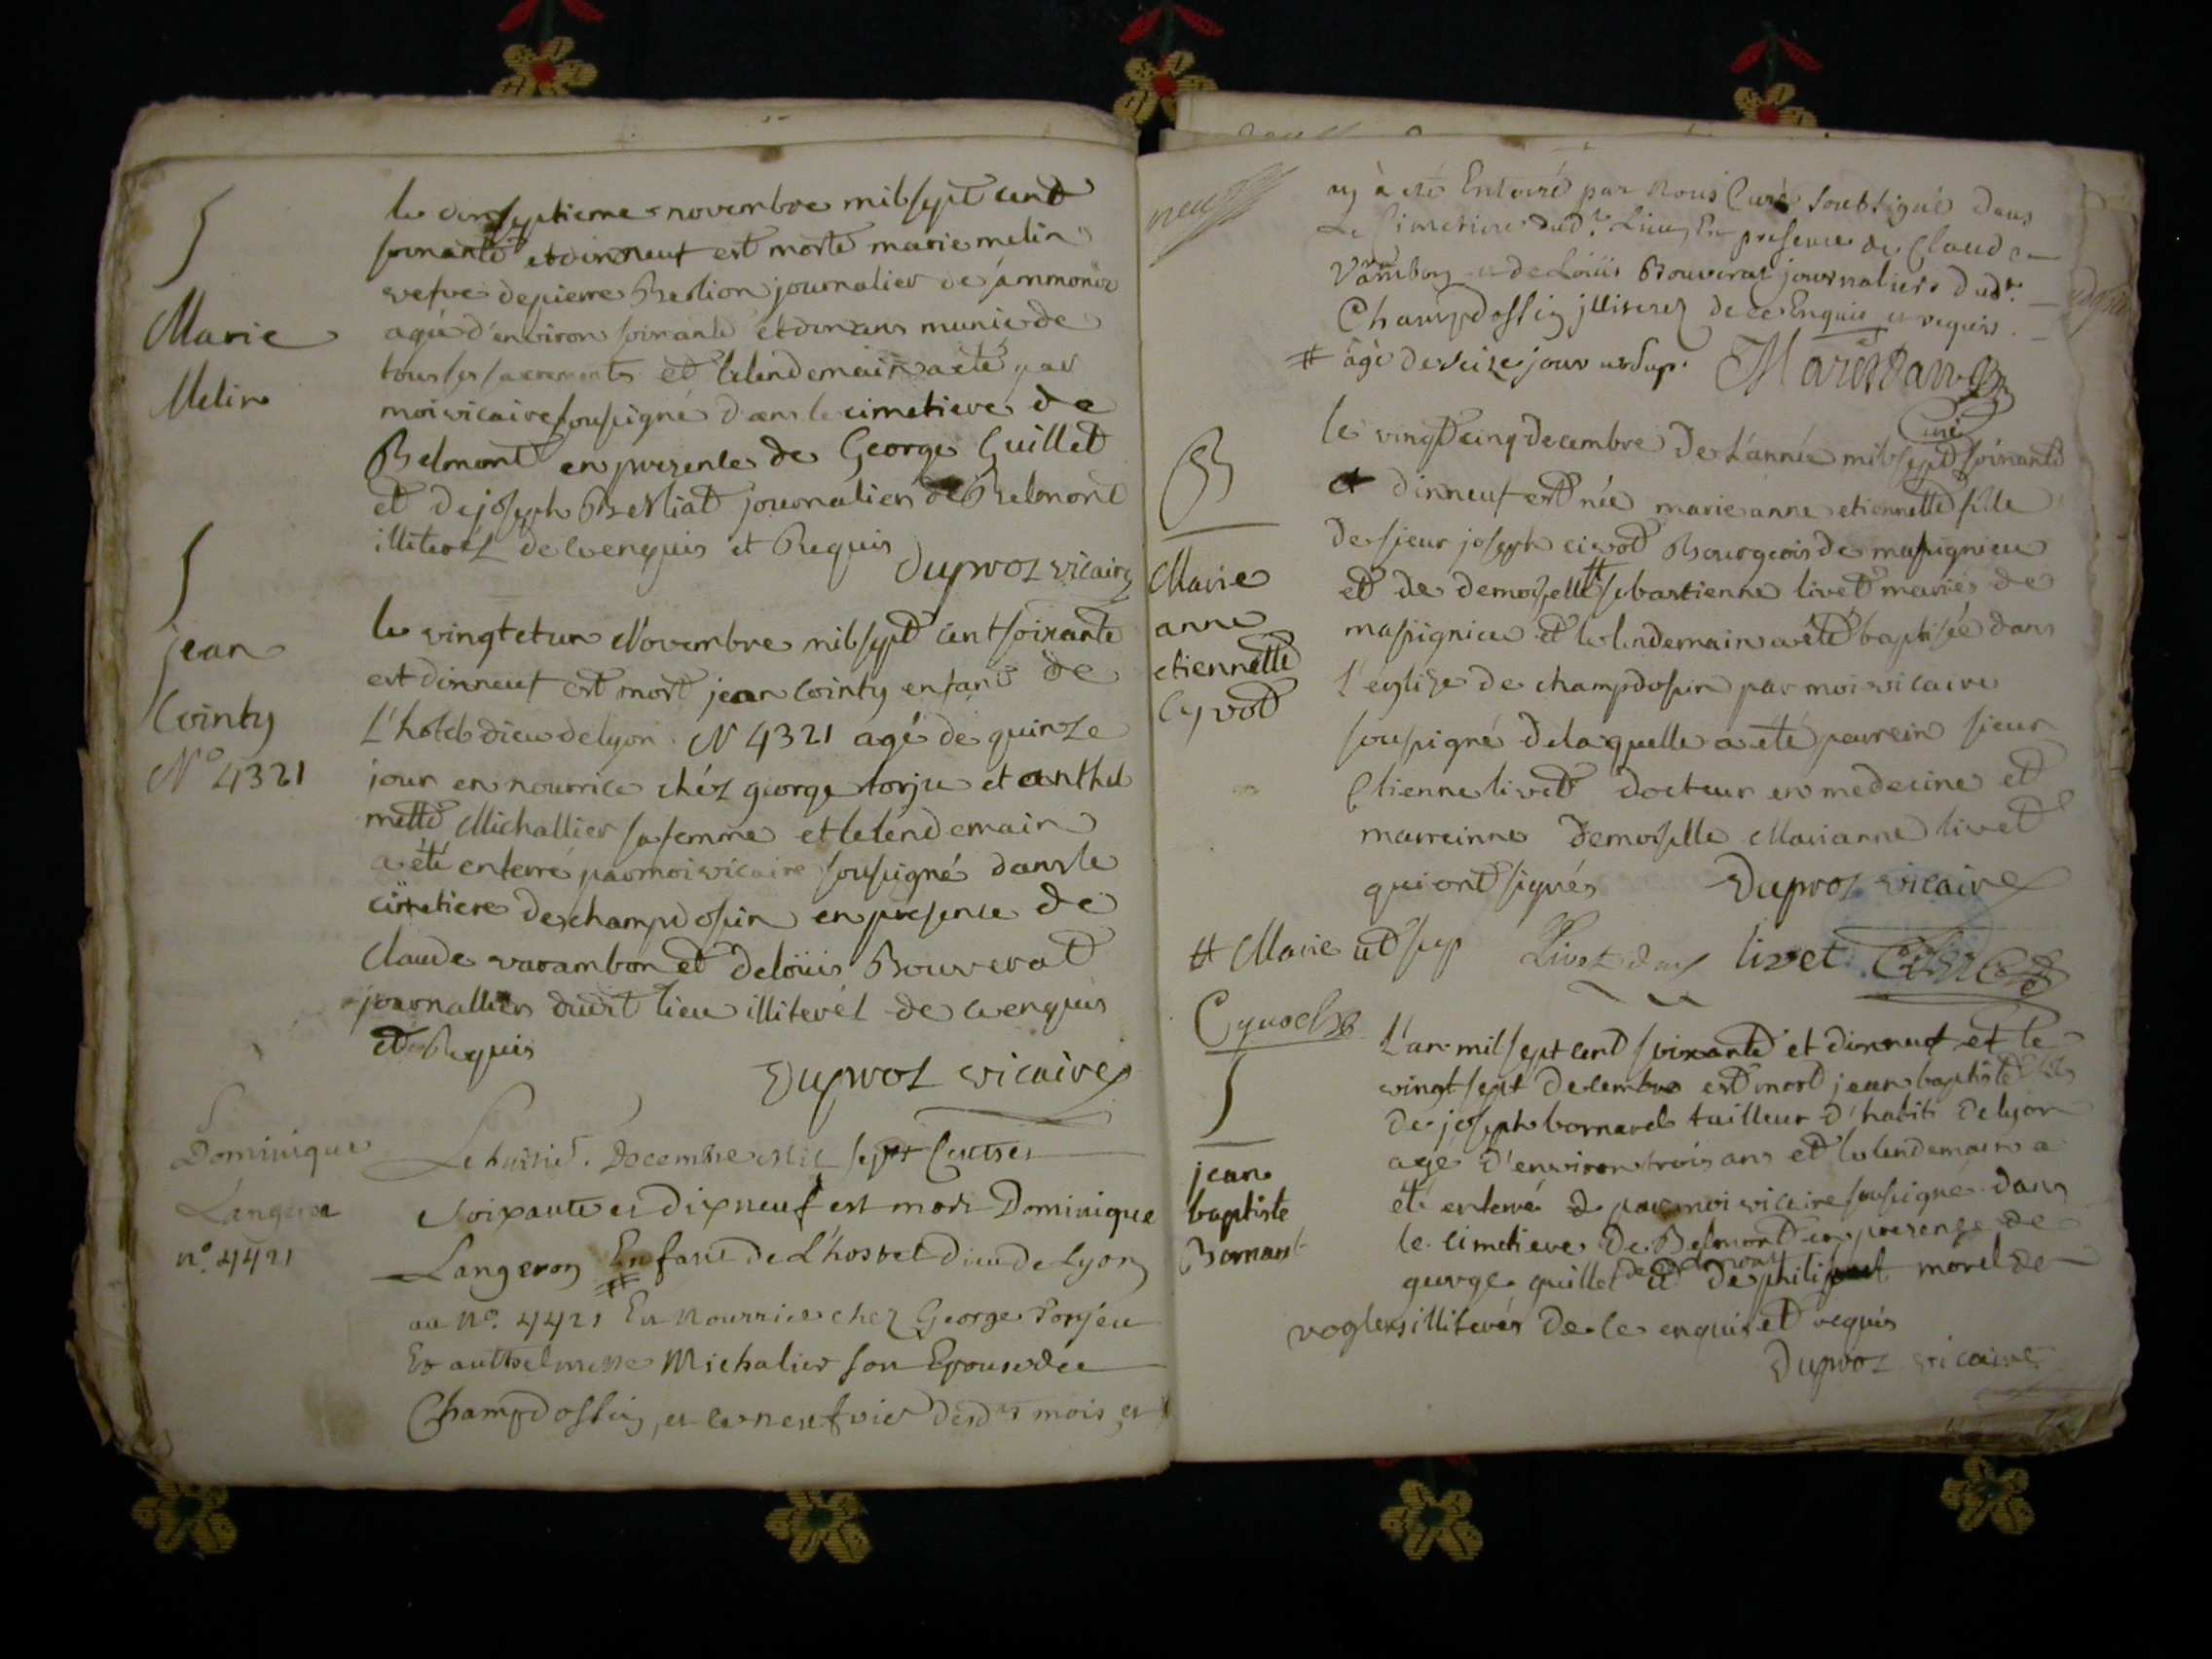 S
Marie
Melin
le dixseptieme novembre mil sept cent
soixante et dixneuf est morte marie melin
vefve de pierre Brestion journalier d'ammonia
agée d'environ soixante et dix ans munie de
tous ses sacrements et le lendemain a été par
moi vicaire sousigné dans le cimetiere de
Belmont en presente de George Guillet
et de joseph journalier de Belmont
illiterés de ce enquis et Requis
Duproz vicaire
S
jean
Cointy
N° 4321
le vingt et un Novembre mil sept cent soixante
est dixneuf est mort jean Cointy enfant de
L'hotel dieu de lyon N 4321 agé de quinze
jour en nourrice chéz george torju et anthel
mette Michallier sa femme et le lendemain
a été enterré par moi vicaire sousigné dans le
cimetiere de champdosin en presence de
Claude varambon et de loüis Bouverat
journallier dudit lieu illiterél de ce enquis
et Requis
Duproz vicaire
S
Dominique
Langeron
n° 4421
Le huitié. Decembre mil sept Cents
soixante et dixneuf est mort Dominique
Langeron # Enfant de L'hostel dieu de Lyon
au N° 4421 En Nourrice chez George Torjeu
Et anthelmette Michalier son Epouse de
Champdossin, et le neufvie desd.ts mois et
neuf
an à eté Enterré par Nous Curé soubsigné dans
Le Cimetiere dud.t Lieu, En presence de Claude
Varambon et de Loüis Bouverat journaliers dud.t
Champdossin jlliterez de ce Enquis et requis.
# agé de seize jour ut sup.
Curé
B
Marie
anne
etiennette
Cyvot
le vingt cinq decembre de L'année mil sept soixante
et dixneuf est née marie anne etiennette fille
de sieur joseph civot Bourgeois de masignieu
et de demoiselle # sebastienne livet mariés de
masignieu et le lendemain a été baptisée dans
L'eglise de champdosin par moi vicaire
sousigné de laquelle a été parrein sieur
Etienne livet docteur en medecine et
marreinne demoiselle Marianne livet
qui ont signés Duproz vicaire
# Marie ut sup Livet livet
S
jean
baptiste
Bornard
L'an mil sept cent soixante et dixneuf et le
vingt sept decembre est mort jean baptiste fils
de joseph bornard tailleur d'habits de lyon
agé d'environ trois ans et le lendemain a
été enterré par moi vicaire sousigné dans
le cimetiere de Belmont en presenge de
george guillet et de philipe morel de
voglens illiterés de ce enquis et requis
Duproz vicaire